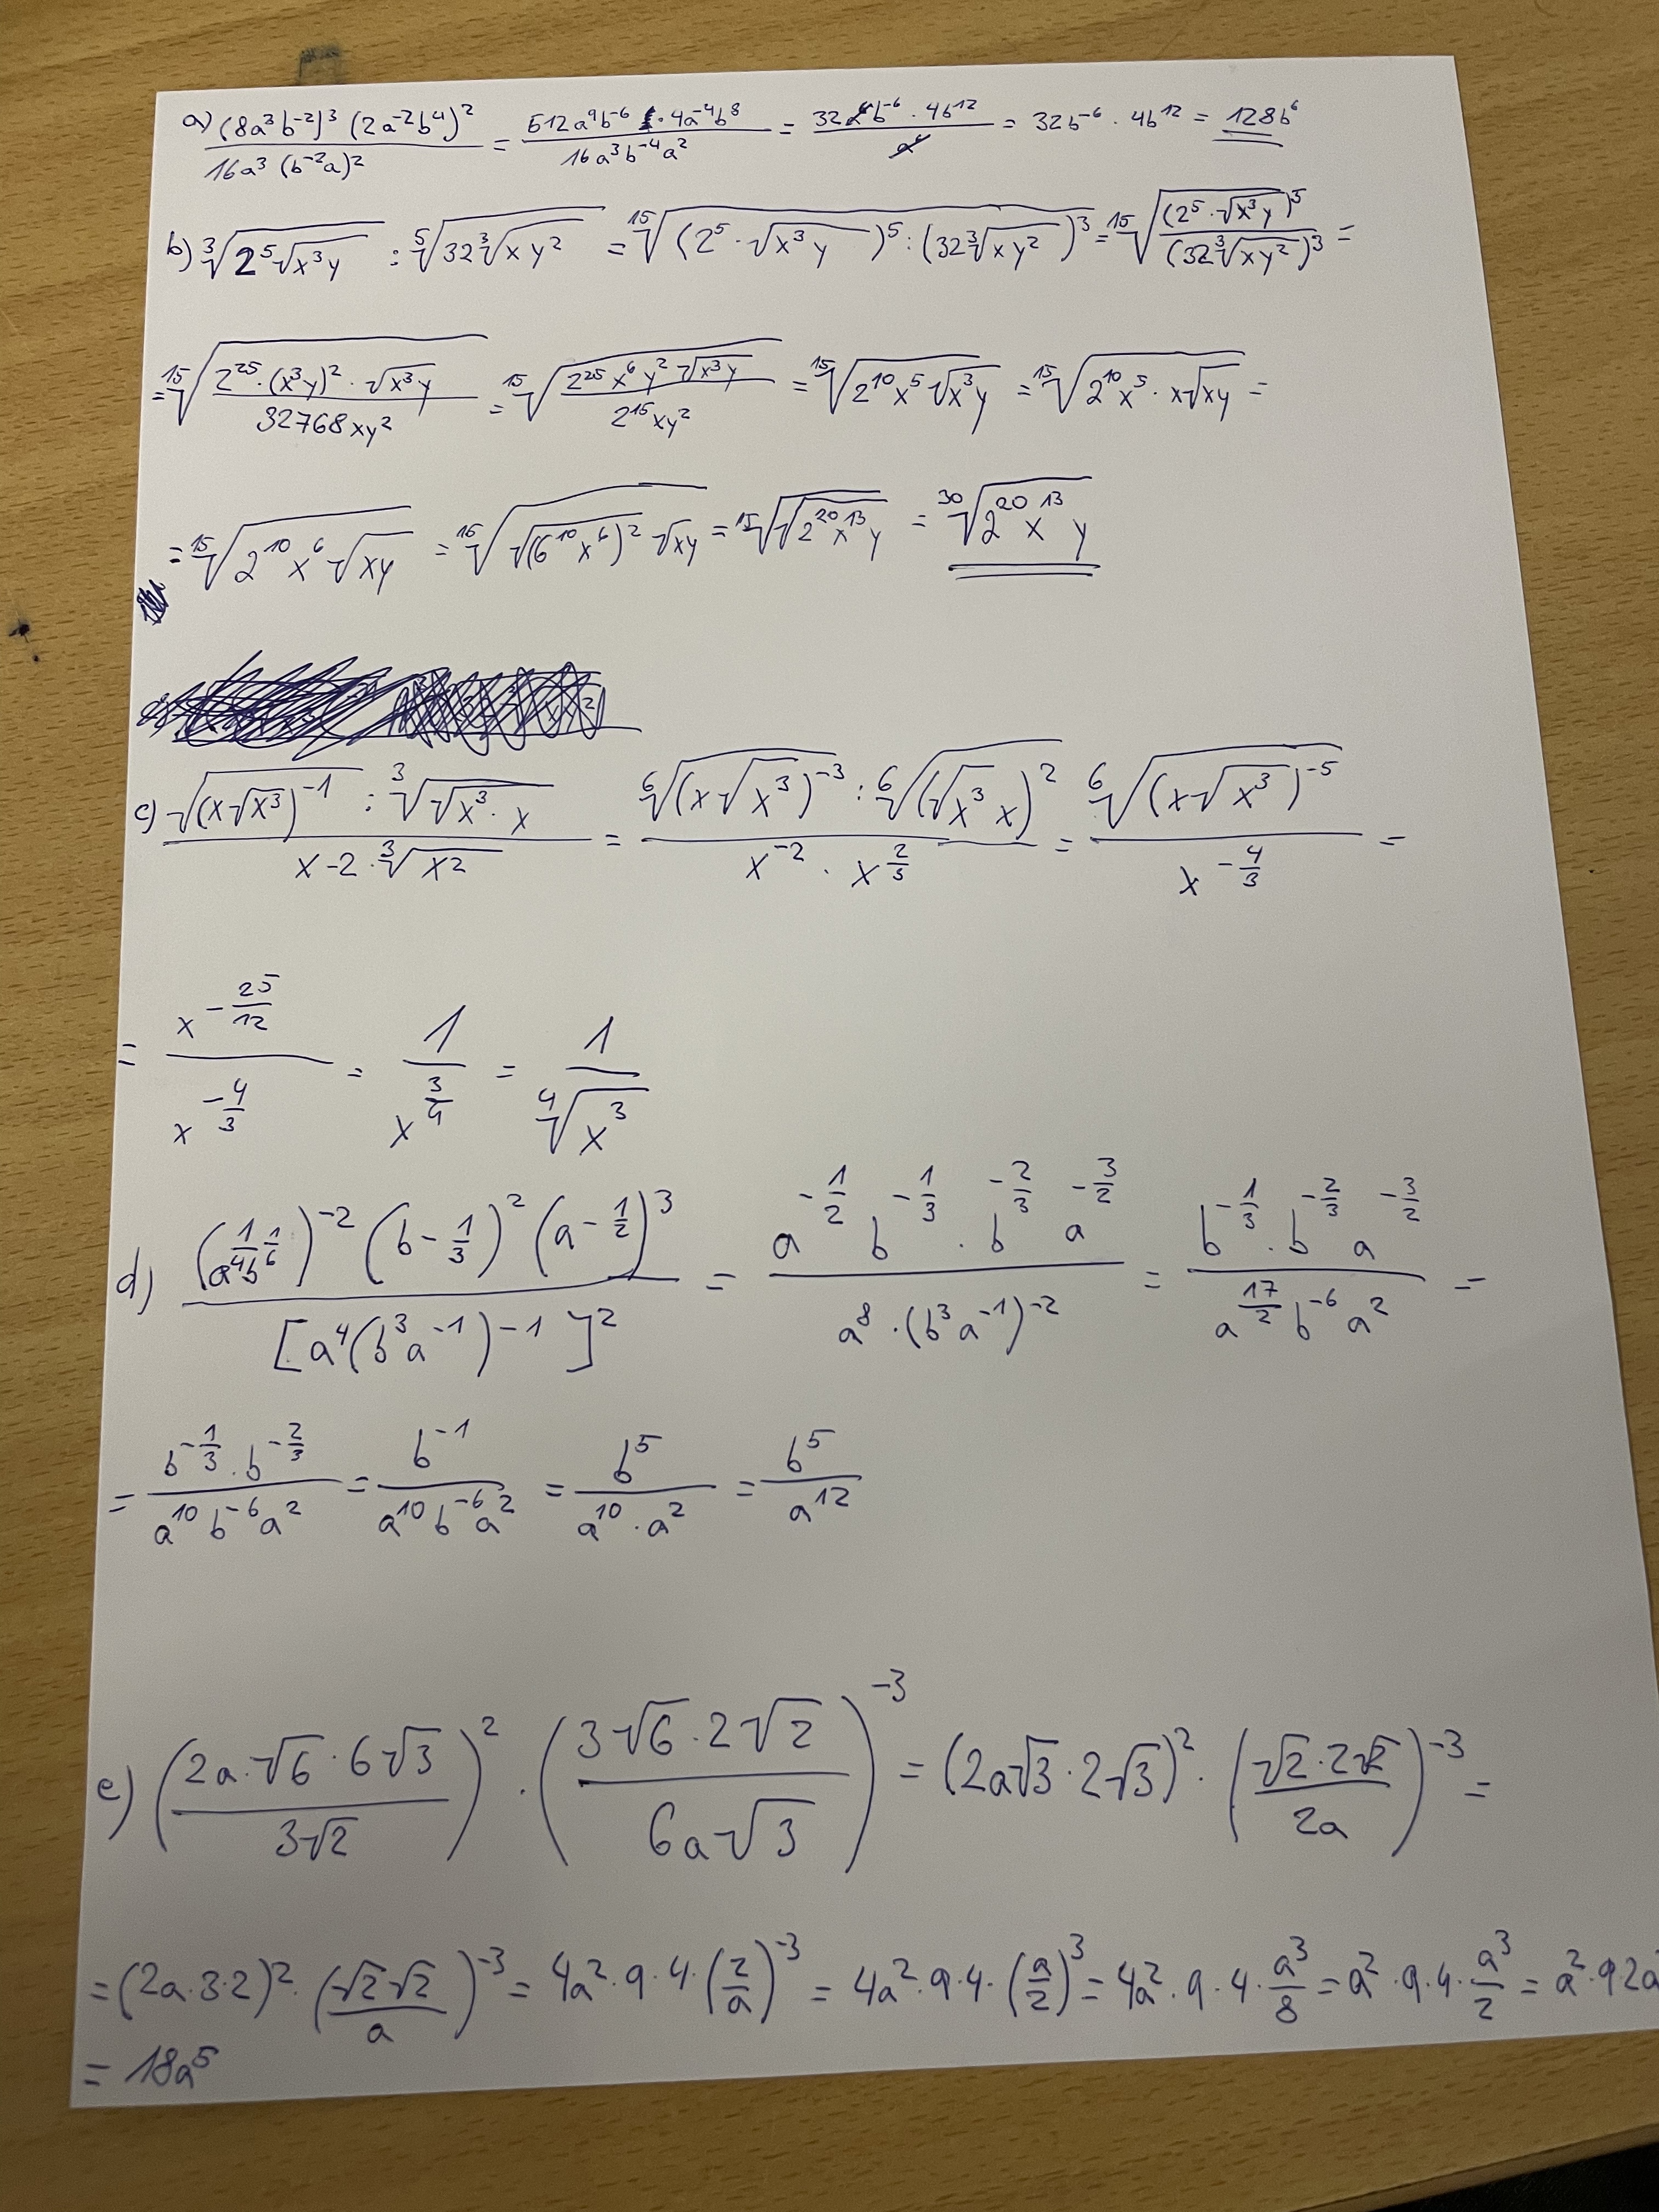 a) \frac{(8a^3b^{-2})^3 (2a^{-2}b^4)^2}{16a^3 (b^{-2}a)^2} = \frac{512a^9b^{-6} \cdot 4a^{-4}b^8}{16a^3b^{-4}a^2} = \frac{32a^4b^{-6} \cdot 4b^{12}}{a^4} = 32b^{-6} \cdot 4b^{12} = 128b^6
b) \sqrt[3]{2^5\sqrt{x^3y}} : \sqrt[5]{32\sqrt[3]{xy^2}} = \sqrt[15]{(2^5 \cdot \sqrt{x^3y})^5 : (32\sqrt[3]{xy^2})^3} = \sqrt[15]{\frac{(2^5 \cdot \sqrt{x^3y})^5}{(32\sqrt[3]{xy^2})^3}} =
= \sqrt[15]{\frac{2^{25} \cdot (x^3y)^2 \cdot \sqrt{x^3y}}{32768xy^2}} = \sqrt[15]{\frac{2^{25}x^6y^2\sqrt{x^3y}}{2^{15}xy^2}} = \sqrt[15]{2^{10}x^5\sqrt{x^3y}} = \sqrt[15]{2^{10}x^5 \cdot x\sqrt{xy}} =
= \sqrt[15]{2^{10}x^6\sqrt{xy}} = \sqrt[15]{\sqrt{(6^{10}x^6)^2}\sqrt{xy}} = \sqrt[15]{\sqrt{2^{20}x^{13}y}} = \sqrt[30]{2^{20}x^{13}y}
c) \frac{\sqrt{(x\sqrt{x^3})^{-1}} : \sqrt[3]{\sqrt{x^3} \cdot x}}{x-2 \cdot \sqrt[3]{x^2}} = \frac{\sqrt[6]{(x\sqrt{x^3})^{-3}} : \sqrt[6]{(\sqrt{x^3}x)^2}}{x^{-2} \cdot x^{\frac{2}{3}}} = \frac{\sqrt[6]{(x\sqrt{x^3})^{-5}}}{x^{-\frac{4}{3}}} =
= \frac{x^{-\frac{25}{12}}}{x^{-\frac{4}{3}}} = \frac{1}{x^{\frac{3}{4}}} = \frac{1}{\sqrt[4]{x^3}}
d) \frac{(a^{\frac{1}{4}}b^{\frac{1}{6}})^{-2} (b-\frac{1}{3})^2 (a-\frac{1}{2})^3}{[a^4(b^3a^{-1})-1]^2} = \frac{a^{-\frac{1}{2}}b^{-\frac{1}{3}} \cdot b^{-\frac{2}{3}}a^{-\frac{3}{2}}}{a^8 \cdot (b^3a^{-1})^{-2}} = \frac{b^{-\frac{1}{3}} \cdot b^{-\frac{2}{3}}a^{-\frac{3}{2}}}{a^{\frac{17}{2}}b^{-6}a^2} =
= \frac{b^{-\frac{1}{3}} \cdot b^{-\frac{2}{3}}}{a^{10}b^{-6}a^2} = \frac{b^{-1}}{a^{10}b^{-6}a^2} = \frac{b^5}{a^{10} \cdot a^2} = \frac{b^5}{a^{12}}
e) (\frac{2a \cdot \sqrt{6} \cdot 6\sqrt{3}}{3\sqrt{2}})^2 \cdot (\frac{3\sqrt{6} \cdot 2\sqrt{2}}{6a\sqrt{3}})^{-3} = (2a\sqrt{3} \cdot 2\sqrt{3})^2 \cdot (\frac{\sqrt{2} \cdot 2\sqrt{2}}{2a})^{-3} =
= (2a \cdot 3 \cdot 2)^2 \cdot (\frac{\sqrt{2}\sqrt{2}}{a})^{-3} = 4a^2 \cdot 9 \cdot 4 \cdot (\frac{2}{a})^{-3} = 4a^2 \cdot 9 \cdot 4 \cdot (\frac{a}{2})^3 = 4a^2 \cdot 9 \cdot 4 \cdot \frac{a^3}{8} = a^2 \cdot 9 \cdot 4 \cdot \frac{a^3}{2} = a^2 \cdot 9 \cdot 2a
= 18a^5